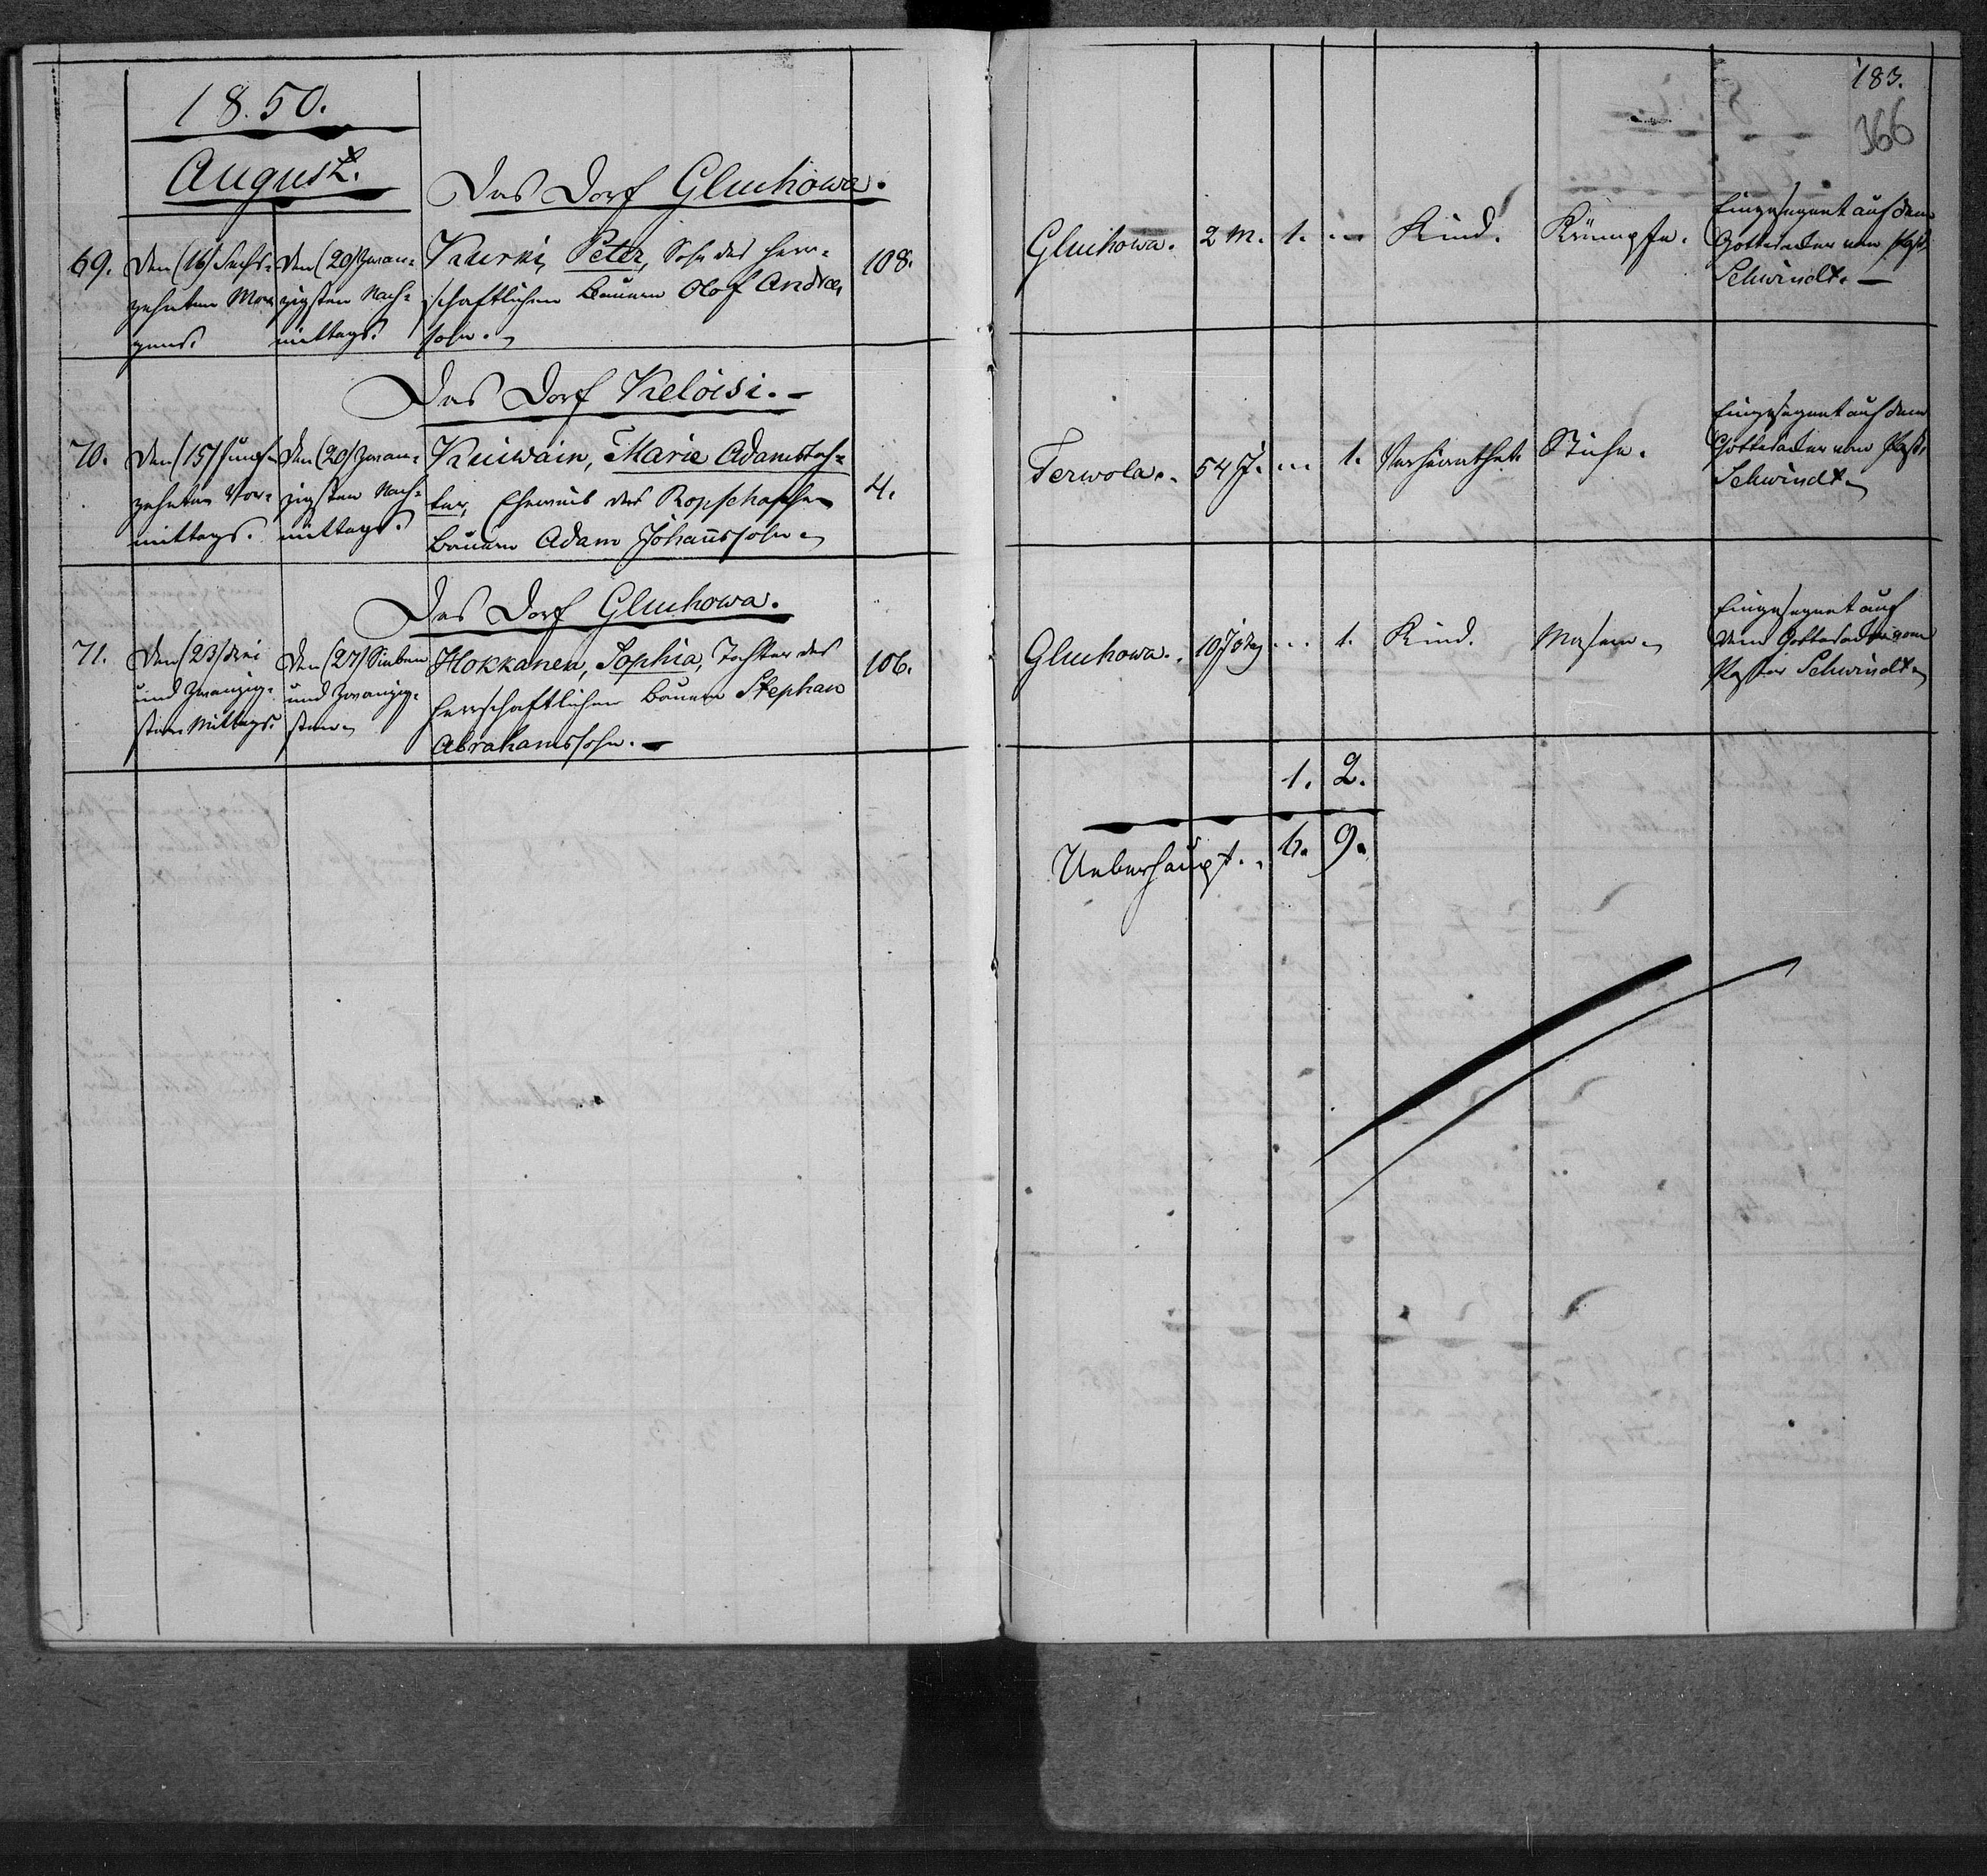 18.50.
August.
Das Dorf Gluchowa.
69. Den (16) Sechs-
zehnten Mor-
gens.
Den (20) Zwan-
zigsten Nach-
mittags.
Kurki, Peter, Sohn des herr-
schaftlichen Bauern Olof Andrea
sohn.
108.
Das Dorf Kelöisi.
70. Den (15) Funf-
zehnten Vor-
mittags.
Den (20) Zwan-
zigsten Nach-
mittags.
Kuiwain, Marie Adamstoch-
ter, Eheweib des Ropschaschen
Bauern Adam Johannssohn
4.
Das Dorf Gluchowa.
71. Den (23) Drei
und zwanzig-
sten Mittags.
Den (27) Sieben
und zwanzig-
sten
Hokkanen, Sophia, Tochter des
herrschaftlichen Bauern Stephan
Abrahamssohn.
106.
183.
366
Gluchowa. 2 M. 1. ... Kind. Krämpfe.
Eingesegnet auf dem
Gottesacker vom Past.
Schwindt.
Terwola. 54 J. ... 1. Verheirathet. Stiche.
Eingesegnet auf dem
Gottesacker vom Past.
Schwindt
Gluchowa. ... 1. Kind. Masern
Eingesegnet auf
dem Gottesacker vom
Pastor Schwindt
1. 2.
Ueberhaupt. 6. 9.